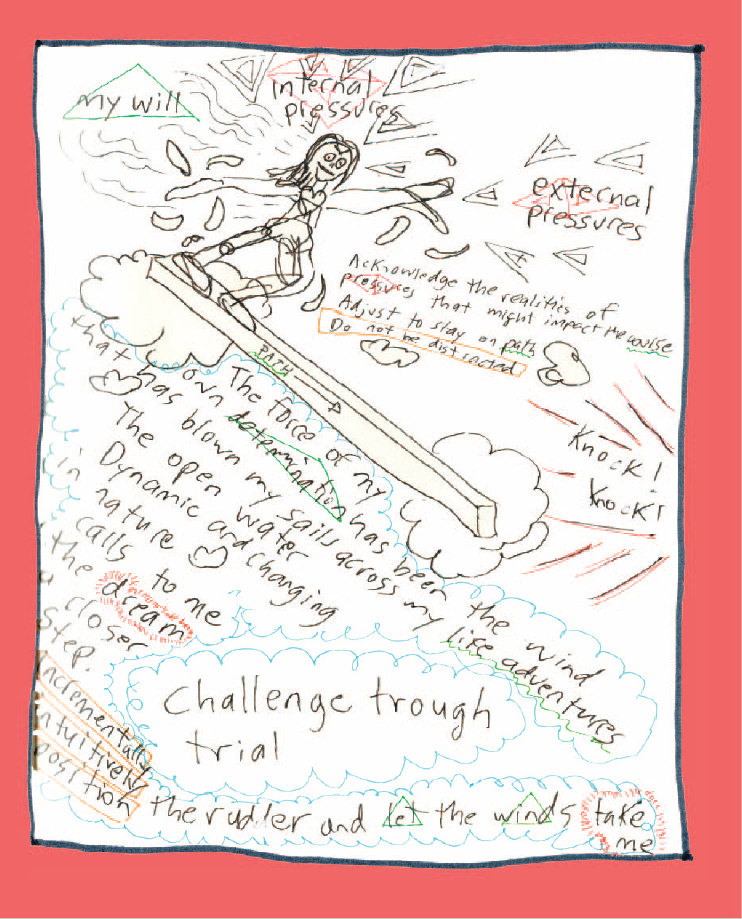 my will
internal
pressures
external
pressures
Acknowledge the realities of
pressures that might impact the course
Adjust to stay on path
Do not be distracted
PATH
Knock!
Knock!
The force of my
own determination has been the wind
that has blown my sails across my life adventures
The open water
Dynamic and changing
in nature
calls to me
the dream
a closer
step.
Challenge trough
trial
incrementally
intuitively
position
the rudder and let the winds take
me